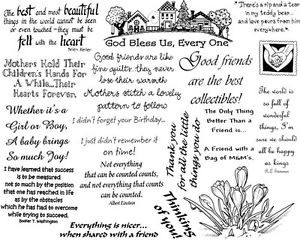 The best and most beautiful
things in the world cannot be seen
or even touched - they must be
felt with the heart
Helen Keller
God Bless Us, Every One
"There's a rip and a tear
in my teddy bear...
and love pours from him
everywhere."
Mothers Hold Their
Children's Hands For
A While... Their
Hearts Forever
Good friends are like
fine quilts, they never
lose their warmth
Mothers stitch a lovely
pattern to follow
Good
friends
are the best
collectibles!
I didn't forget your Birthday...
I just didn't remember it
on time!
Whether it's a
Girl or Boy,
A baby brings
So much Joy!
Not everything
that can be counted counts,
and not everything that counts
can be counted.
Albert Einstein
Thank you
for the
little things
you do.
The Only Thing
Better Than a
Friend is...
A Friend with a
Bag of M&M's.
The world is
so full of
wonderful
things, I'm
sure we should
all be happy
as kings
I have learned that success
is to be measured
not so much by the position
that one has reached in life
as by the obstacles
which he has had to overcome
while trying to succeed.
Booker T. Washington
Thinking
of you
Everything is nicer...
when shared with a friend